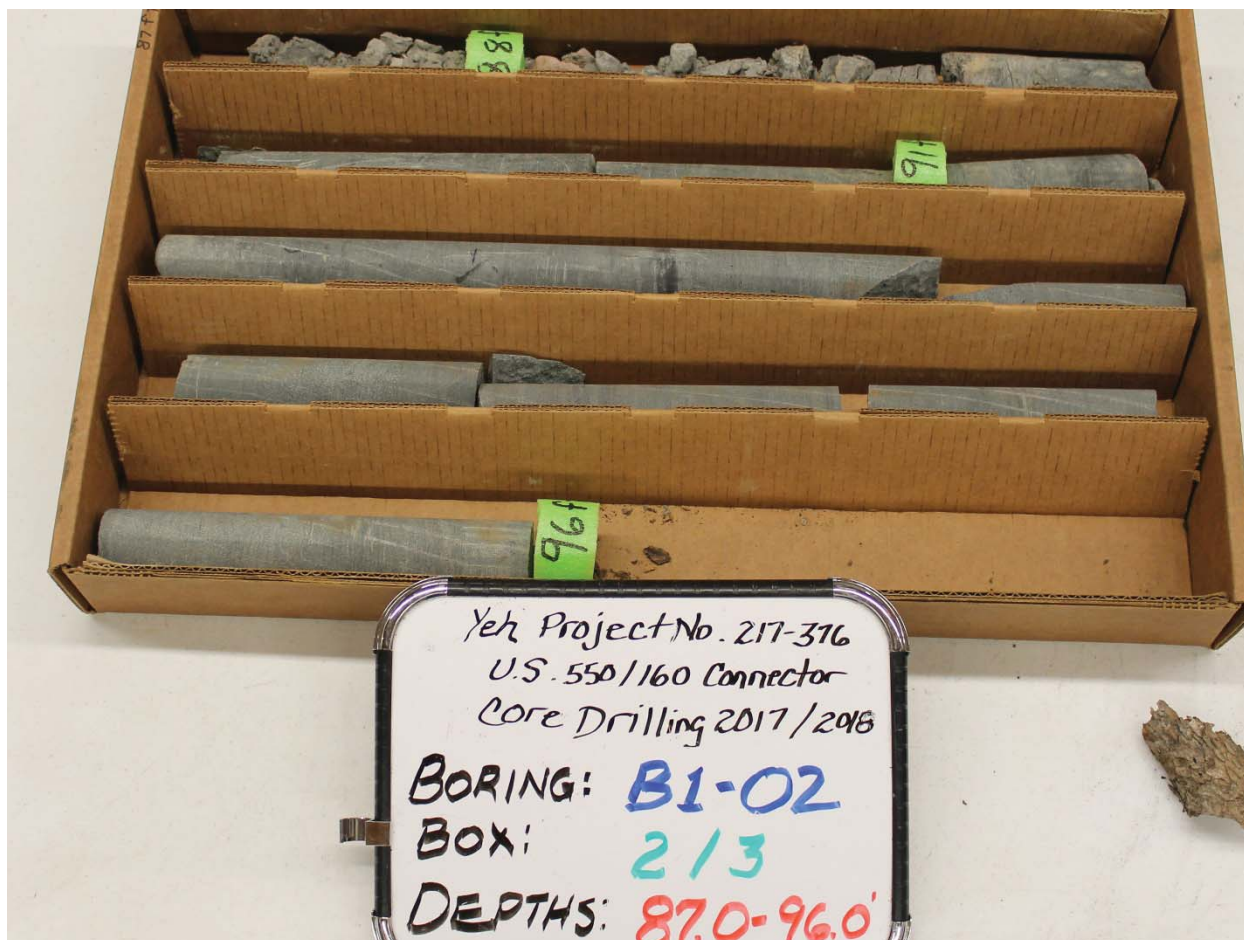 87f
88f
91f
96f
Yeh Project No. 217-376
U.S. 550/160 Connector
Core Drilling 2017/2018
BORING: B1-02
BOX: 2/3
DEPTHS: 87.0-96.0'